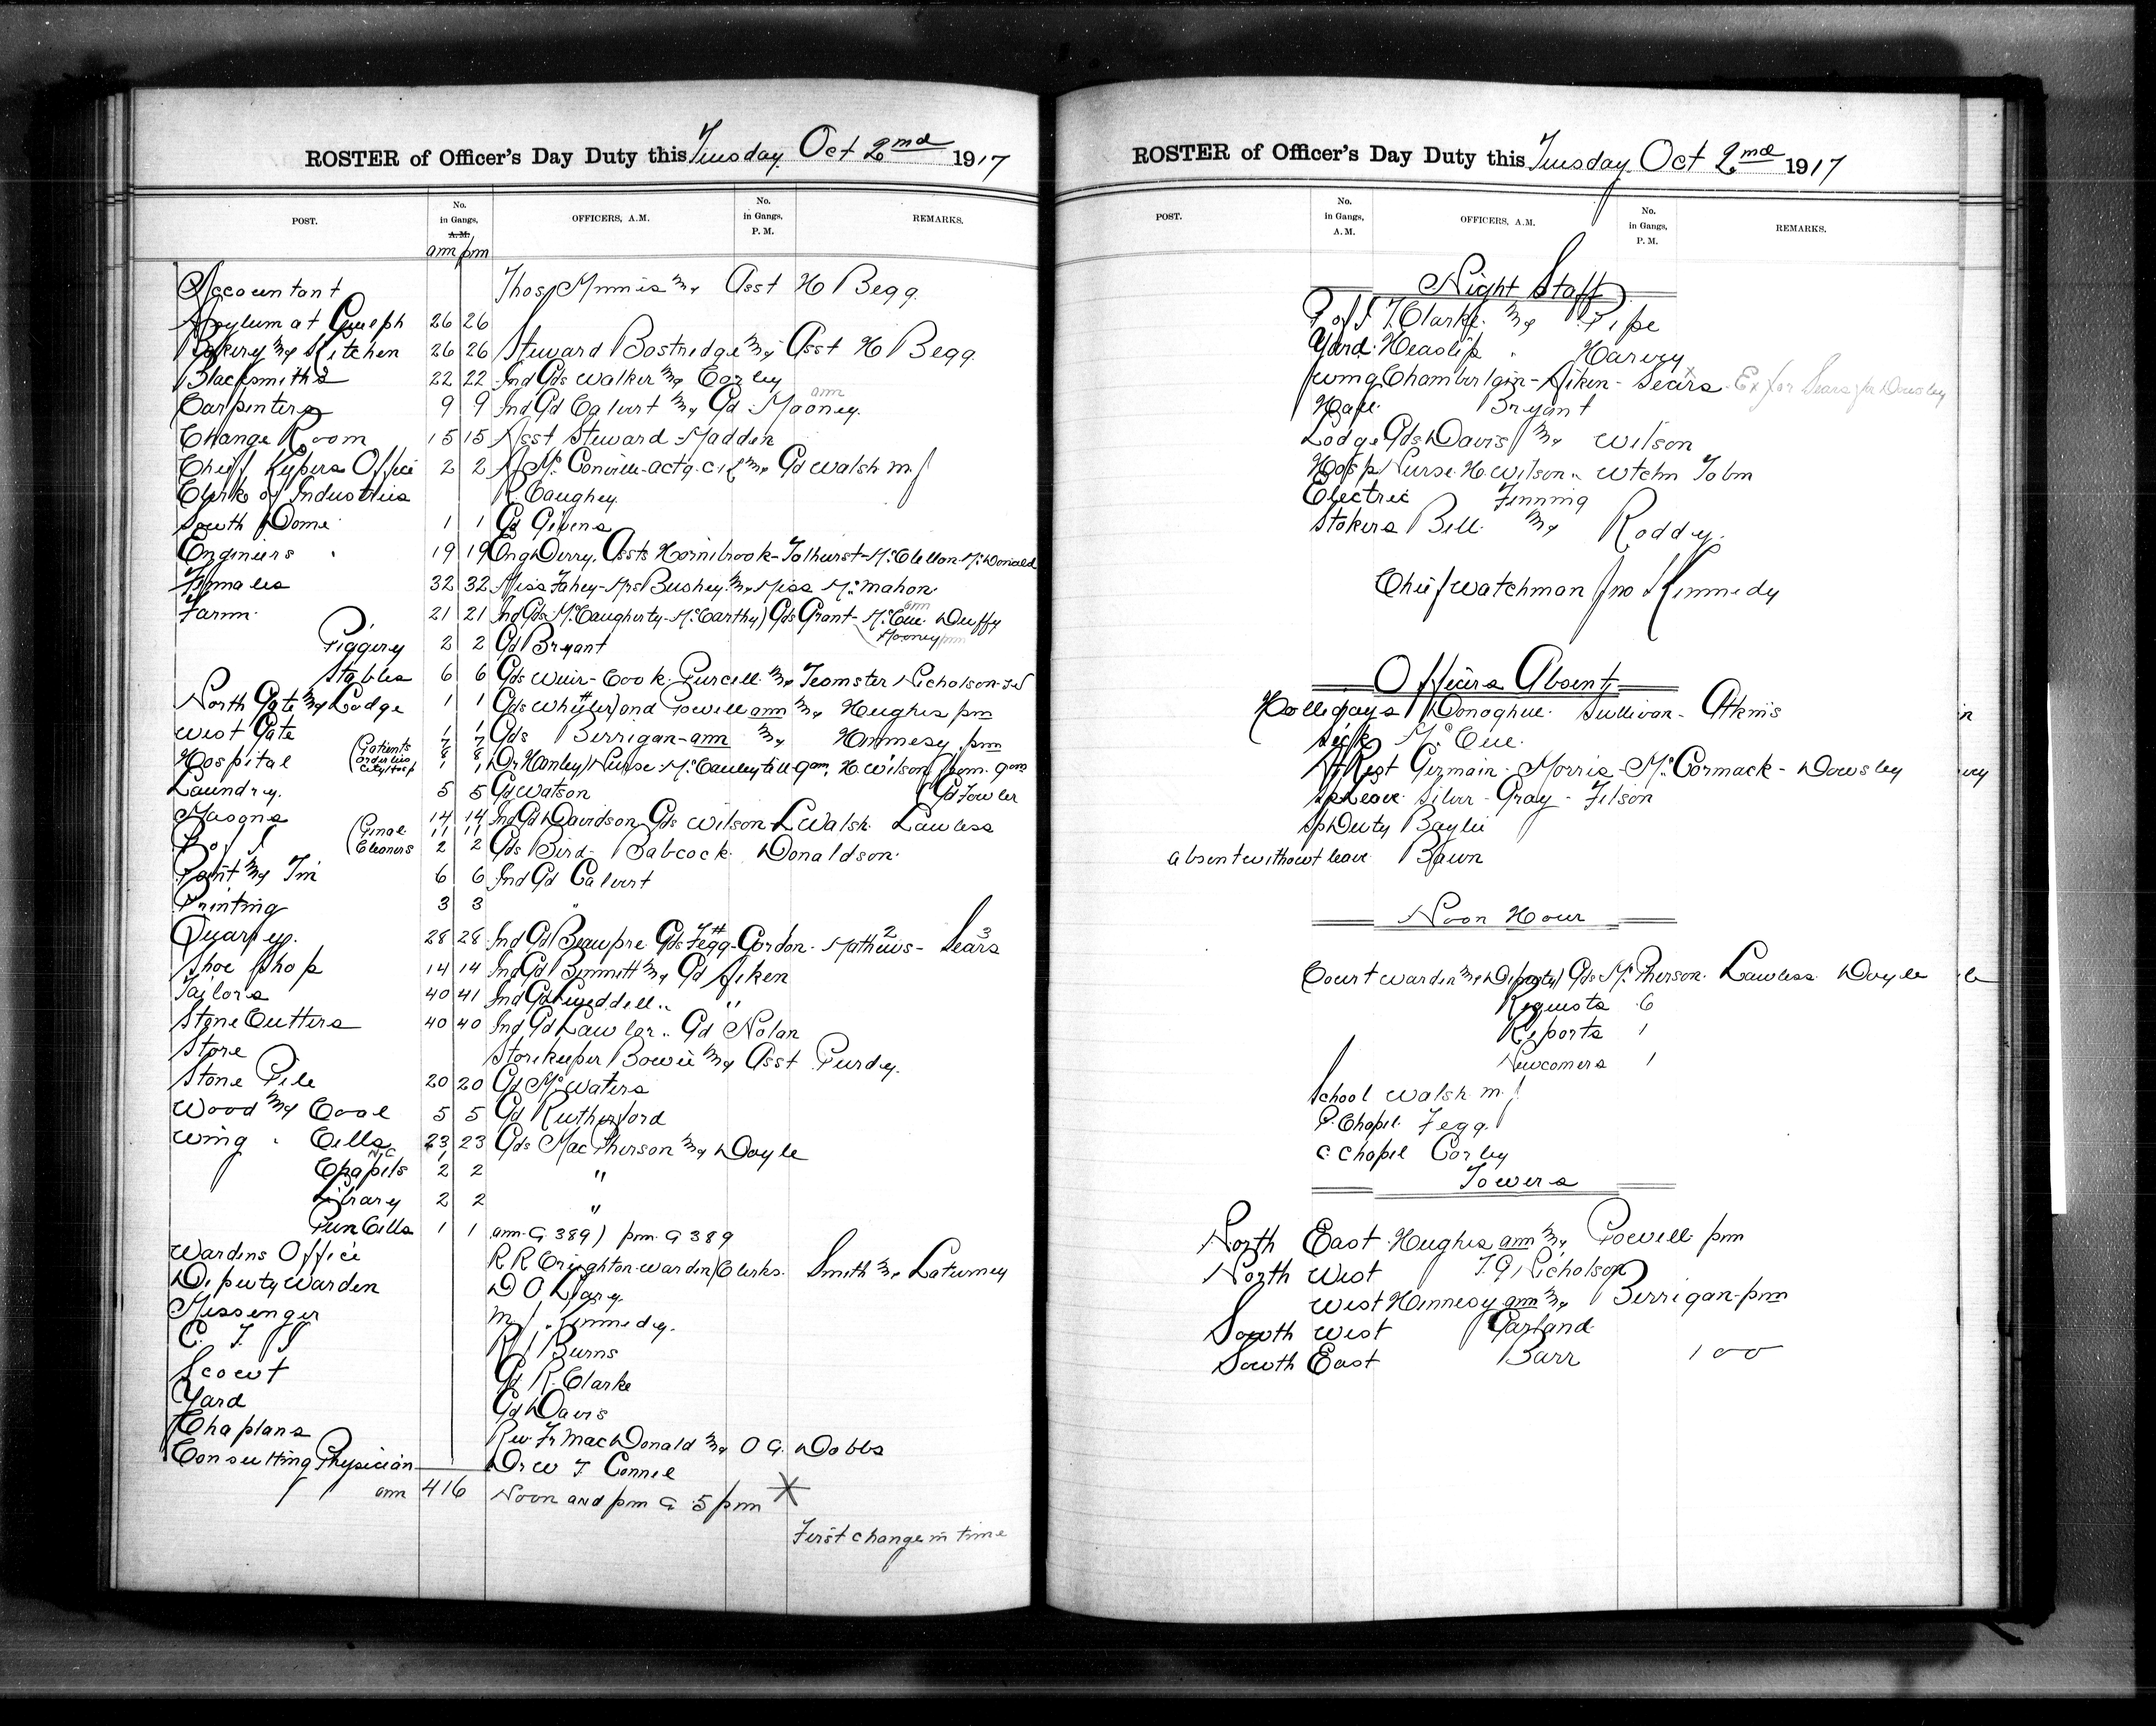 ROSTER of Officer's Day Duty this Tuesday Oct 2nd 1917
POST. No. in Gangs, A.M. OFFICERS, A.M. No. in Gangs, P. M. REMARKS.
am pm
Accountant Thos Minnis & Asst H Begg
Asylum at Guelph 26 26
Bakery & Kitchen 26 26 Steward Bostridge & Asst H Begg
Blacksmiths 22 22 Ind Gds Walker & Corby
Carpenters 9 9 Ind Gd Calvert & Gd Mooney am
Change Room 15 15 Asst Steward Madden
Chief Kepers Office 2 2 Mc Conville actg. & Gd Walsh m.J
Clerk of Industries R Caughey
South Dome 1 1 Gd Givens
Engineers 19 19 Eng Derry, Assts Hornibrook - Tolhurst - McClellon McDonald
Females 32 32 Miss Fahey - Mrs Bushey & Miss McMahon
Farm 21 21 Ind Gds McCaugherty - McCarthy) Gds Grant - McCue am Duffy
Mooney pm
Piggery 2 2 Gd Bryant
Stables 6 6 Gds Weir - Cook Purcell & Teamster Nicholson
North Gate & Lodge 1 1 Gds Wheeler) and Powell am & Hughes pm
West Gate 1 1 Gds Berrigan - am & Hennesy pm
Hospital (Patients 7 7
orderlies 8 8
City Hosp 1 1 Dr Hanley) Nurse McCauley till 9am, H. Wilson from 9am
Laundry 5 5 Gd Watson (Gd Fowler
Masons 14 14 Ind Gd Davidson Gds Wilson - L Walsh Lawless
P of I (Penal 11 11
Cleaners 2 2 Gds Bird - Babcock Donaldson
Paint & Tin 6 6 Ind Gd Calvert
Printing 3 3 "
Quarry 28 28 Ind Gd Beaupre Gds Fegg - Gordon - Mathews 2 - Sears 3
Shoe Shop 14 14 Ind Gd Bennett & Gd Aiken
Tailors 40 41 Ind Gd Tweddell " "
Stone Cutters 40 40 Ind Gd Lawlor " Gd Nolan
Store Storekeeper Bowie & Asst Purdy
Stone Pile 20 20 Gd McWaters
Wood & Coal 5 5 Gd Rutherford
Wing Cells 23 23 Gds MacPherson & Doyle
N.C 1
Chapels 2 2 "
Library 2 2 "
Pun Cells 1 1 am G 389) pm G 389
Wardens Office R R Creighton Warden) Clerks Smith & Laturney
Deputy Warden D O Leary
Messenger M J Kennedy
C. T. I R J Burns
Scout Gd R. Clarke
Yard Gd Davis
Chaplans Rev Fr MacDonald & O G. Dobbs
Consulting Physician Dr W T Connel
am 416 Noon and pm G 5 pm *
First change in time
ROSTER of Officer's Day Duty this Tuesday Oct 2nd 1917
POST. No. in Gangs, A.M. OFFICERS, A.M. No. in Gangs, P. M. REMARKS.
Night Staff
P of I T. Clarke & Pipe
Yard Heaslip " Harvey
Wing Chamberlain - Aiken - Sears x Ex for Sears for Dowsley
Hall Bryant
Lodge Gds Davis & Wilson
Hosp Nurse H. Wilson " Wtchm Tobin
Electric Fenning
Stokers Bell & Roddy
Chief Watchman Jno Kennedy
Officers Absent
Hollidays Donoghue Sullivan - Atkins
Sick McCue
At Rest Germain - Morris - McCormack - Dowsley
Sp Leave Silver - Gray - Filson
Sp Duty Baylie
absent without leave Bawn
Noon Hour
Court Warden & Deputy) Gds McPherson Lawless Doyle
Requests 6
Reports 1
Newcomers 1
School Walsh m.J
P. Chapel Fegg
C Chapel Corby
Towers
North East Hughes am & Powell pm
North West T. G Nicholson
West Hennesy am & Berrigan - pm
South West Garland
South East Barr 100